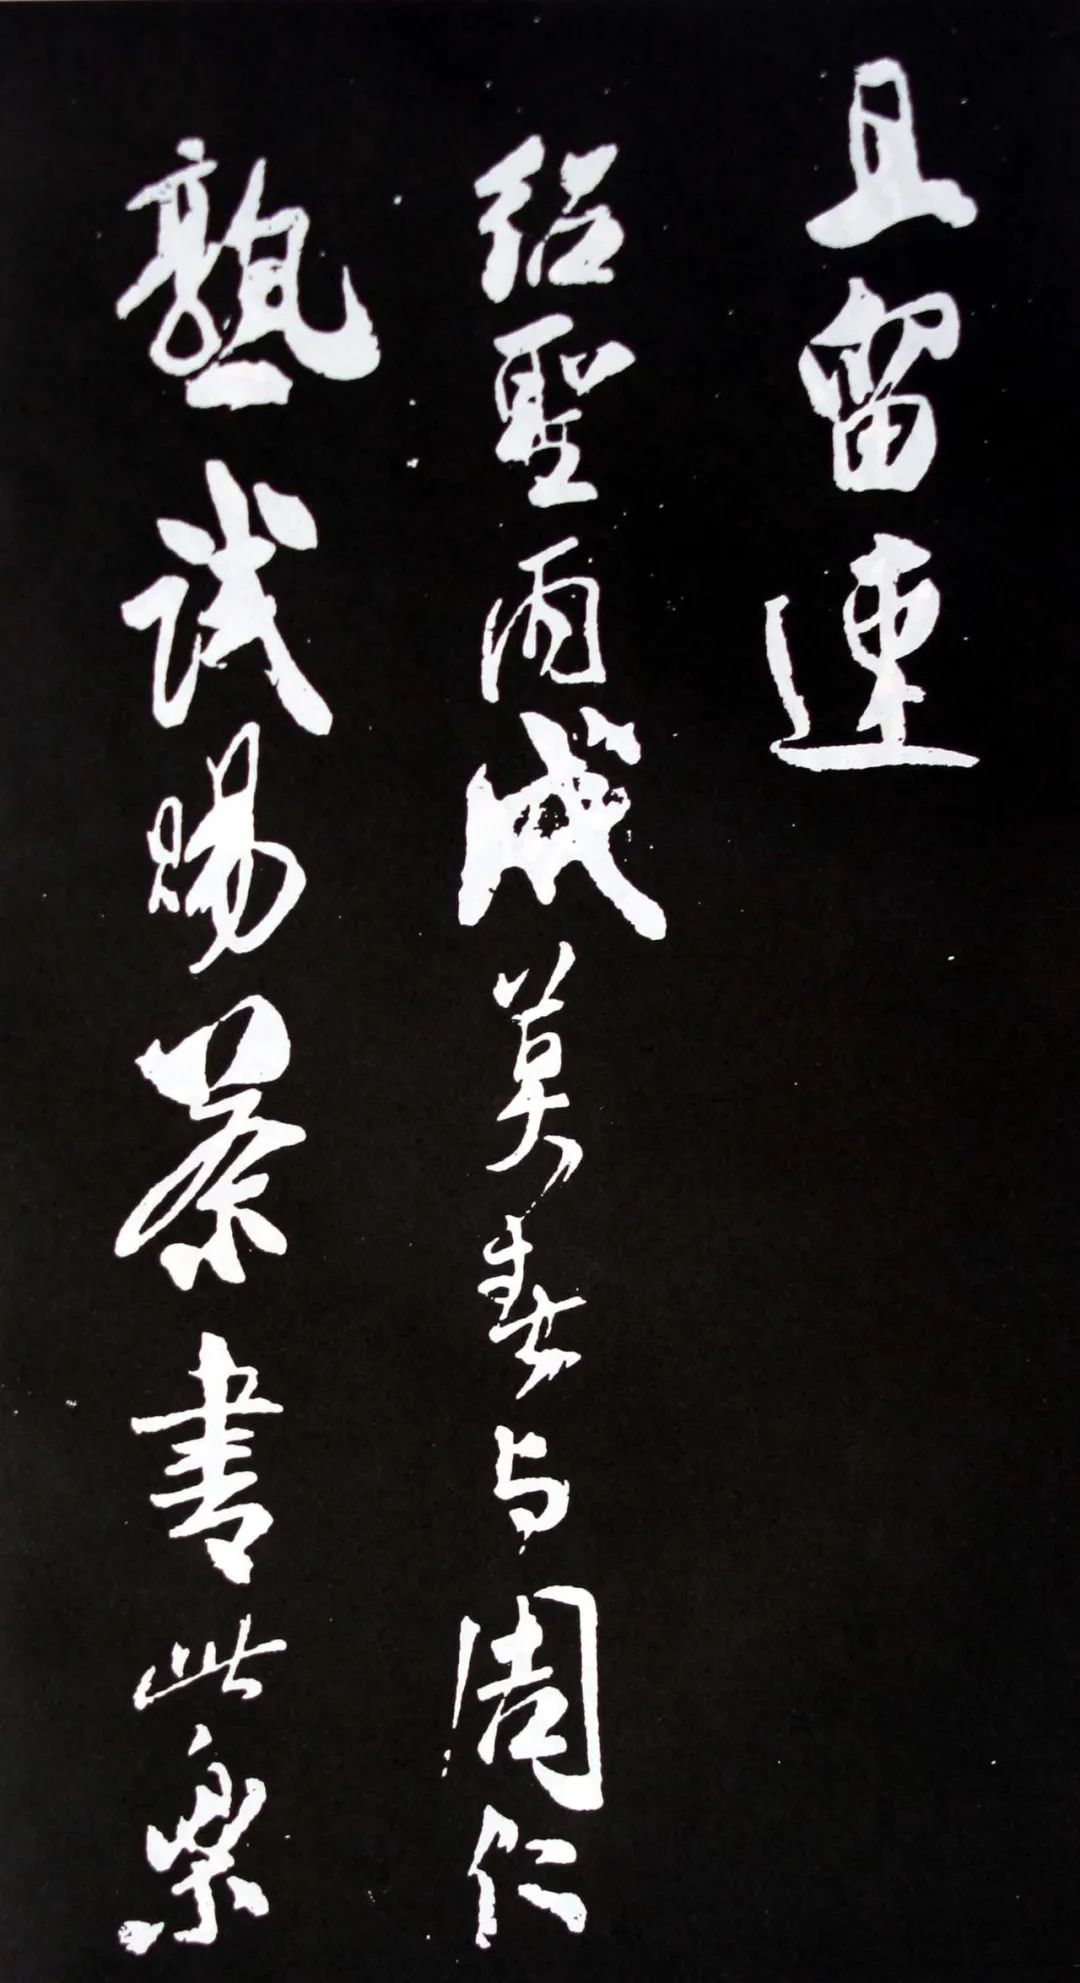 且留連
紹聖丙戌莫春与周仁
熟試賜茶書此樂